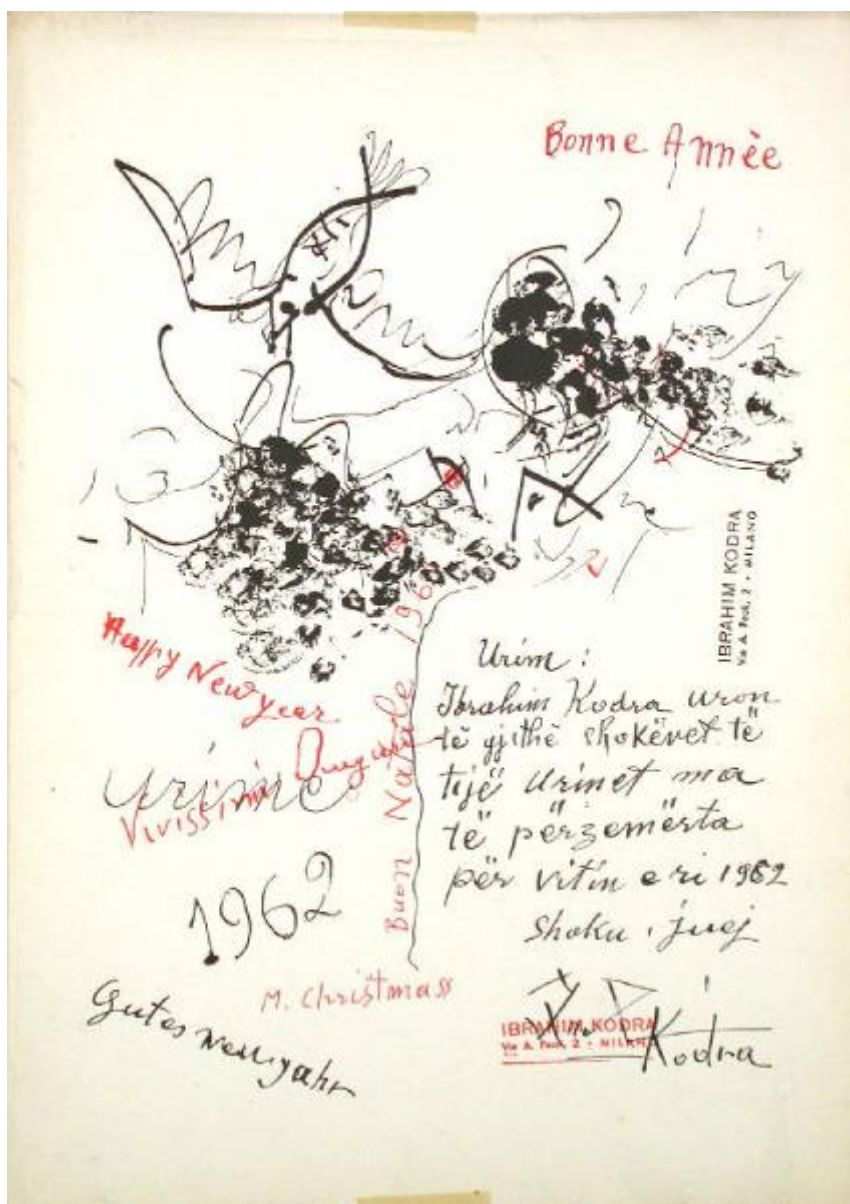 Bonne Annèe
IBRAHIM KODRA
Via A. 2 - MILANO
Happy New
year
Urime
Vivissimi Auguri
Buon Natale 196
1962
M. Christmass
Gutes neu jahr
Urim :
Ibrahim Kodra uron
të gjithë shokëvet të
tijë Urimet ma
të përzemërta
për vitin e ri 1962
Shoku juej
Kodra
IBRAHIM KODRA
Via A. 2 - MILANO